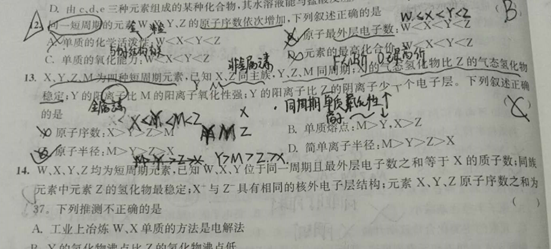 D. 由 c、d、e 三种元素组成的某种化合物,其水溶液能与
B
12. 同一短周期的元素W、X、Y、Z的原子序数依次增加,下列叙述正确的是
W<X<Y<Z
A. 单质的化学活泼性:W<X<Y<Z
B. 原子最外层电子数:W<X<Y<Z
C. 单质的氧化能力:W<X<Y<Z
D. 元素的最高化合价
非金属元素
13. X、Y、Z、M为四种短周期元素,已知X、Z同主族,Y、Z、M同周期;X的气态氢化物比Z的气态氢化物
稳定;Y的阳离子比M的阳离子氧化性强;Y的阳离子比Z的阴离子少一个电子层。下列叙述正确
的是
金属元素
同周期
X<Y<M<Z
X
Y M Z
A. 原子序数:X>Y>Z>M
B. 单质熔点:M>Y,X>Z
C. 原子半径:M>Y>Z>X
D. 简单离子半径:M>Y>Z>X
Y>M>Z>X
14. W、X、Y、Z均为短周期元素,已知W、X、Y位于同一周期且最外层电子数之和等于X的质子数;同族
元素中元素Z的氢化物最稳定;X⁺与Z⁻具有相同的核外电子层结构;元素X、Y、Z原子序数之和为
37。下列推测不正确的是 ( )
A. 工业上冶炼W、X单质的方法是电解法
B. Y的氢化物沸点比Z的氢化物沸点低